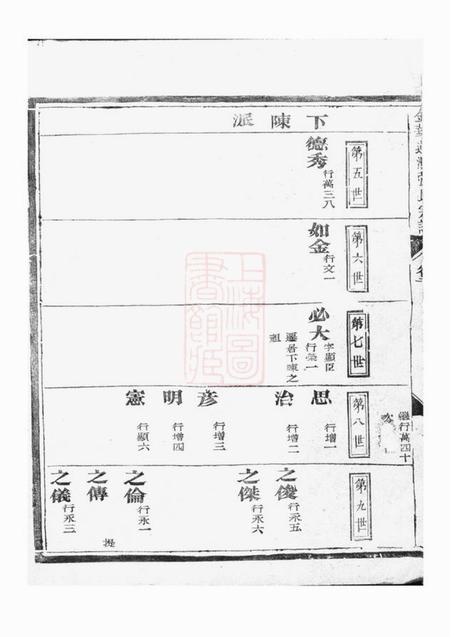 下陳派
第五世
德秀 行萬三八
第六世
如金 行文一
第七世
必大 字顯臣
行榮一
遷居下陳之
祖
儀行萬四十
第八世
思 行增一
治 行增二
彥 行增三
明 行增四
憲 行顯六
第九世
之俊 行永五
之傑 行永六
之倫 行永一
之傳
之儀 行永三
上海圖
書館藏